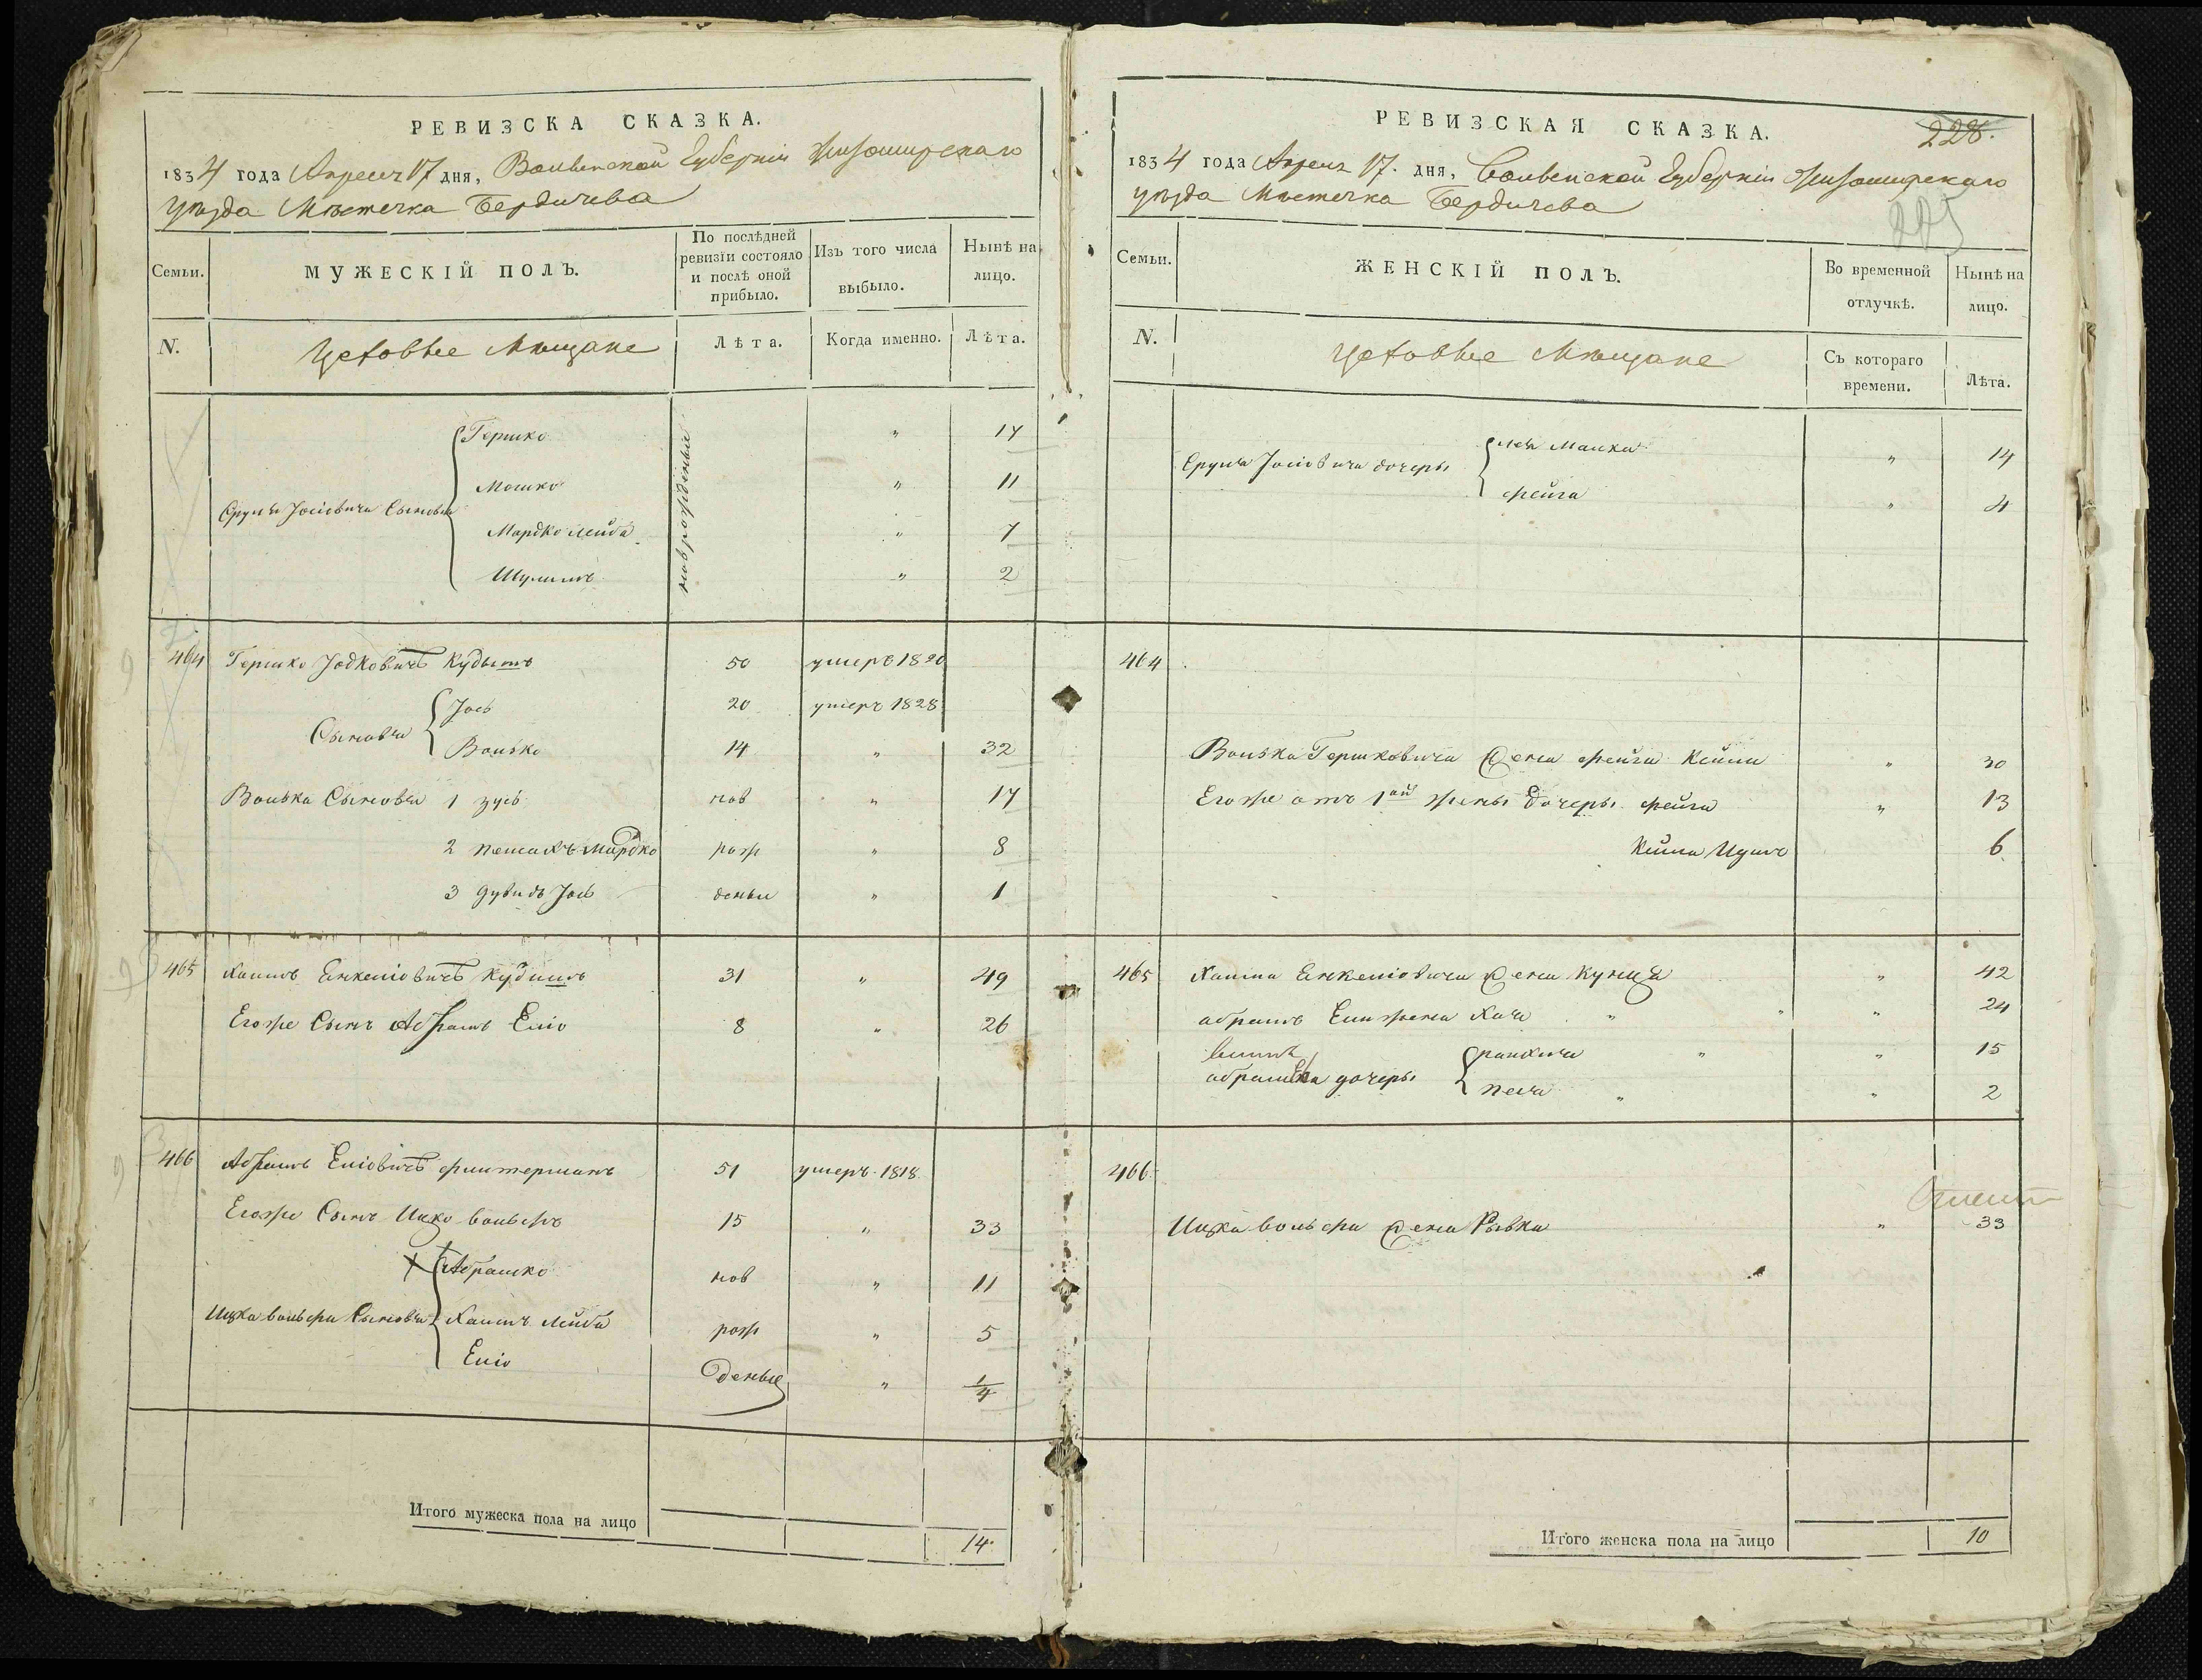 РЕВИЗСКА СКАЗКА.
1834 года Апреля 17 дня, Волынской Губерніи Житомирскаго
уѣзда Мѣстечка Бердичева
Семьи.
МУЖЕСКІЙ ПОЛЪ.
По послѣдней ревизіи состояло и послѣ оной прибыло.
Изъ того числа выбыло.
Нынѣ на лицо.
N.
Цеховые Мѣщане
Лѣта.
Когда именно.
Лѣта.
Сруля Іосіовича Сыновья
новорожденные
Гершко " 17
Мошко " 11
Мордко Лейба " 7
Шулимъ " 2
464 Гершко Іодковичъ Кудышъ 50 умеръ 1820
Сыновья
Іось 20 умеръ 1828
Волько 14 " 32
Волька Сыновья 1 Зусь нов " 17
2 Пейсахъ Мордко рож " 8
3 Дувидъ Іось денные " 1
465 Хаимъ Енкеліовичъ Кудишъ 31 " 49
Егоже Сынъ Абрамъ Еліо 8 " 26
466 Абрамъ Еліовичъ Финтерманъ 51 умеръ 1818
Егоже Сынъ Ицко Вольфъ 15 " 33
Ицка Вольфа Сыновья
Абрашко нов " 11
Хаимъ Лейба рож " 5
Еліо денные " 1/4
Итого мужеска пола на лицо 14
РЕВИЗСКАЯ СКАЗКА.
228.
1834 года Апреля 17. дня, Волынской Губерніи Житомирскаго
уѣзда Мѣстечка Бердичева
Семьи.
ЖЕНСКІЙ ПОЛЪ.
Во временной отлучкѣ.
Нынѣ на лицо.
N.
Цеховые Мѣщане
Съ котораго времени.
Лѣта.
Сруля Іосіовича дочеры
Лея Малка " 14
Фейга " 4
464
Волька Гершковича Жена Фейга Кейла " 30
Егоже отъ 1ой жены дочеры Фейга " 13
Кейла 6
465 Хаима Енкеліовича Жена Куница " 42
Абрамъ Еліи жена Хая " " 24
абрамка дочеры
" " 15
Песя " " 2
466
Ицка Вольфа Жена Рывка " 33
Итого женска пола на лицо 10